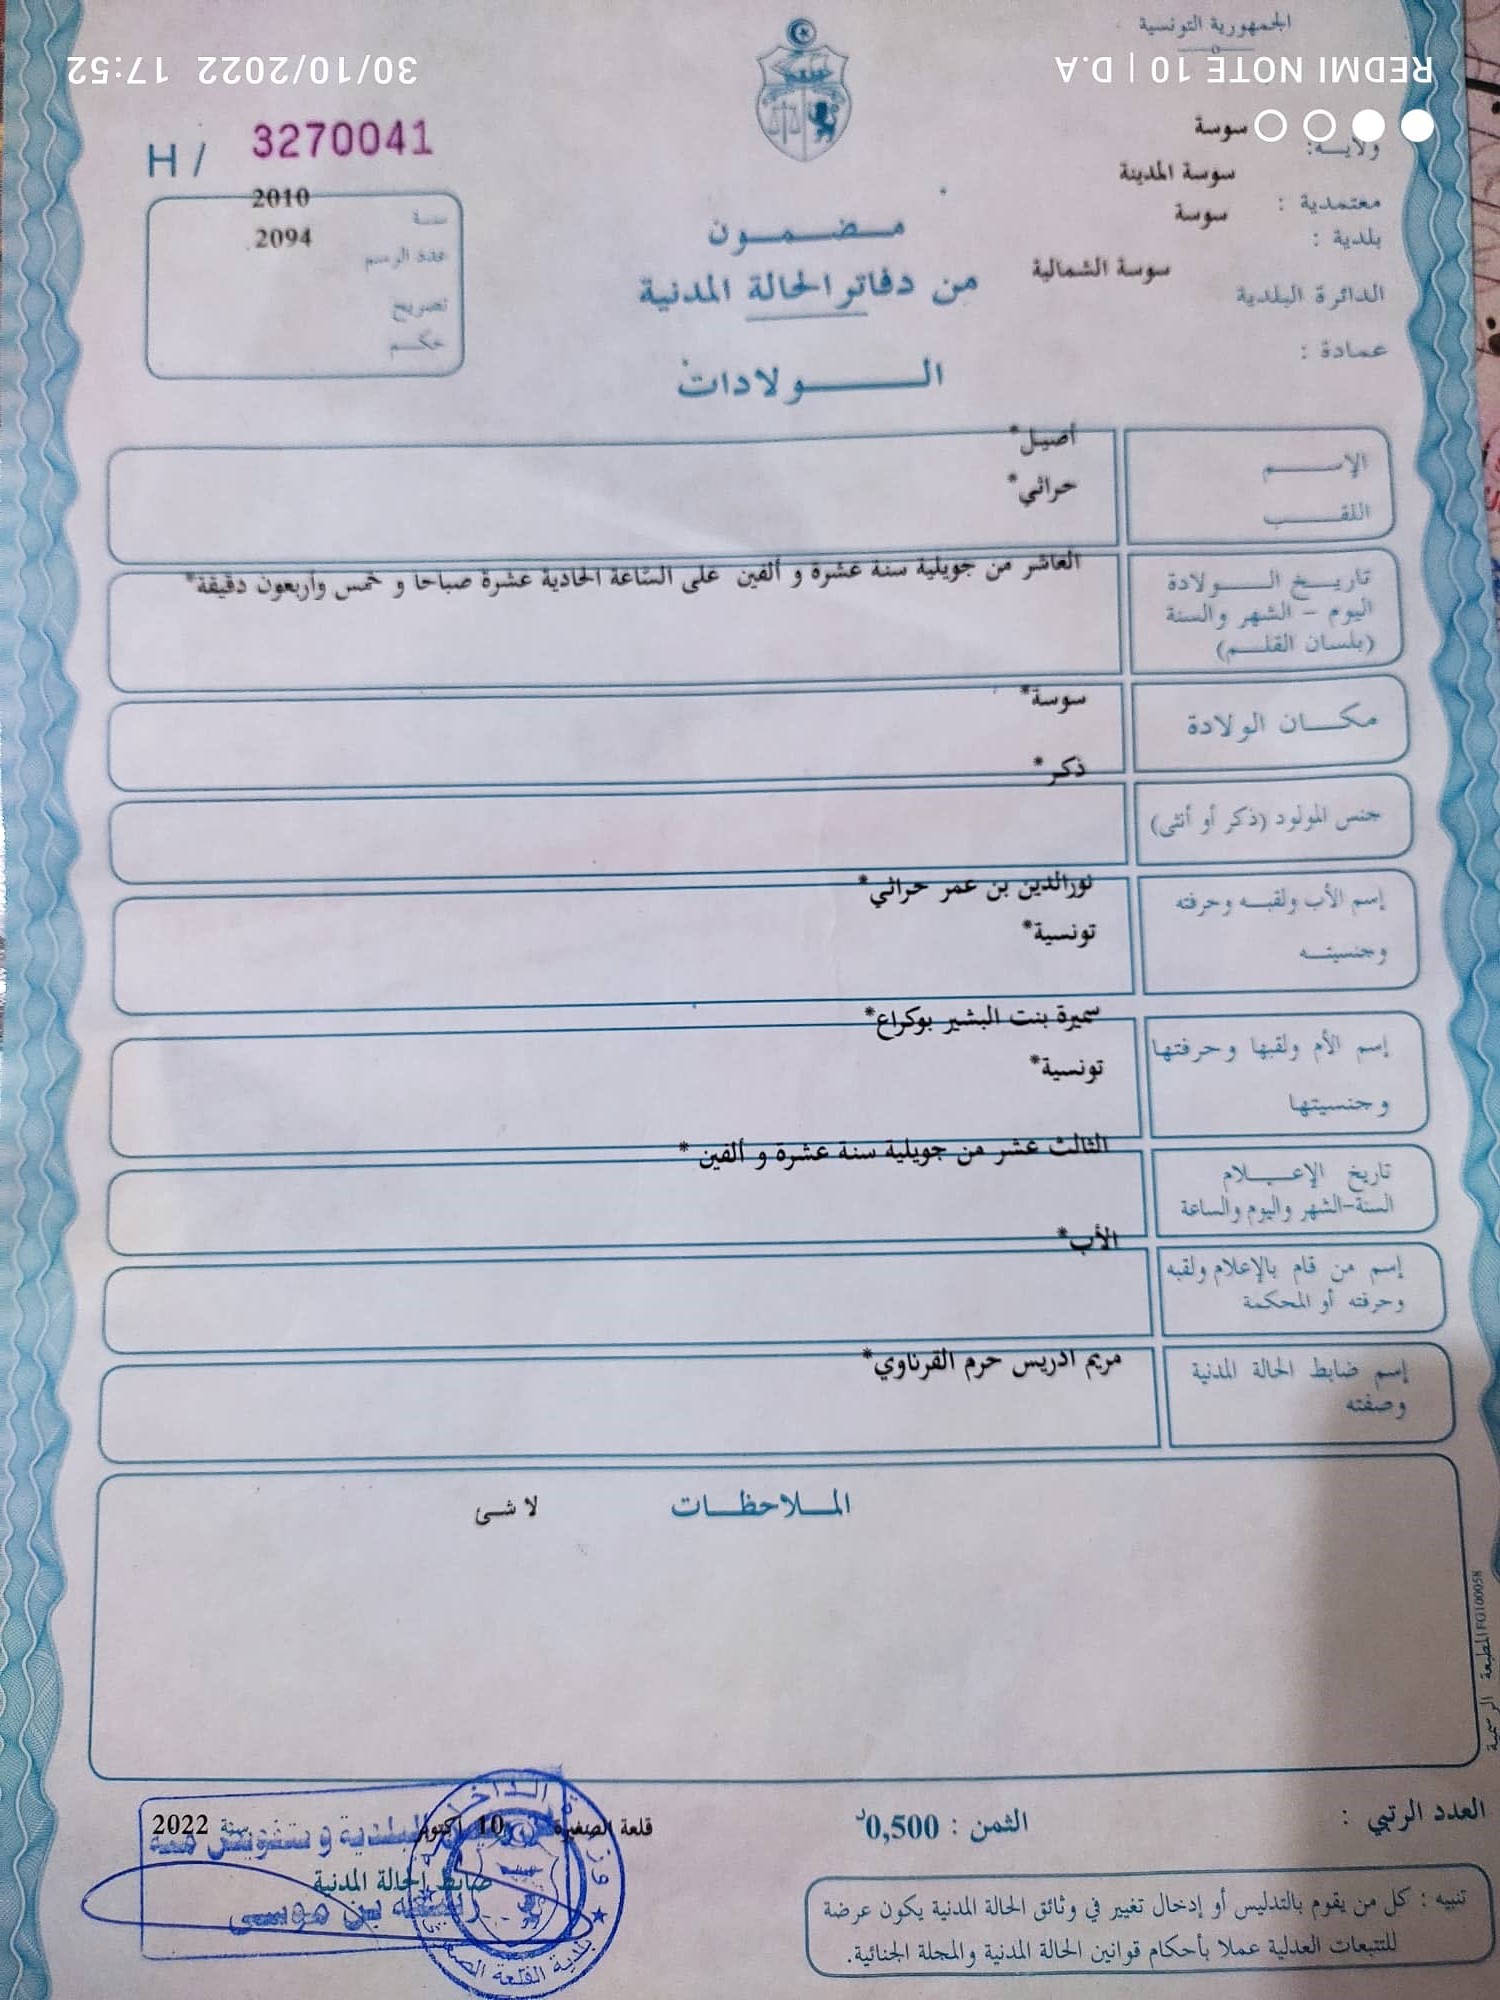 الجمهورية التونسية
REDMI NOTE 10 | D.A
30/10/2022 17:52
ولايـــة: سوسة
معتمدية : سوسة المدينة
بلدية : سوسة
الدائرة البلدية سوسة الشمالية
عمادة :
H / 3270041
سنـة 2010
عدد الرسم 2094
تصريح
حكــم
مــضــمــون
من دفاتر الحالة المدنية
الــــولادات
الإســــم أصيل*
اللقـــب حراثي*
تاريــخ الــــولادة
اليوم - الشهر والسنة
(بلسان القلــم)
العاشر من جويلية سنة عشرة و ألفين على السّاعة الحادية عشرة صباحا و خمس وأربعون دقيقة*
مكـــان الولادة سوسة*
جنس المولود (ذكر أو أنثى) ذكر*
إسم الأب ولقبــه وحرفته نورالدين بن عمر حراثي*
وجنسيتــه تونسية*
إسم الأم ولقبها وحرفتها سميرة بنت البشير بوكراع*
وجنسيتها تونسية*
تاريخ الإعـــلام
السنة-الشهر واليوم والساعة
الثالث عشر من جويلية سنة عشرة و ألفين *
إسم من قام بالإعلام ولقبه
وحرفته أو المحكمة
الأب*
إسم ضابط الحالة المدنية
وصفته
مريم ادريس حرم القرناوي*
المــلاحظــات لا شئ
المطبعة الرسمية FG100058
العدد الرتبي :
الثمن : 0,500د
قلعة الصغيرة 10 أكتوبر سنة 2022
ضابط الحالة المدنية
البلدية وبتفويض منه
بن موسى
بلدية القلعة الصغرى
تنبيه : كل من يقوم بالتدليس أو إدخال تغيير في وثائق الحالة المدنية يكون عرضة
للتتبعات العدلية عملا بأحكام قوانين الحالة المدنية والمجلة الجنائية.